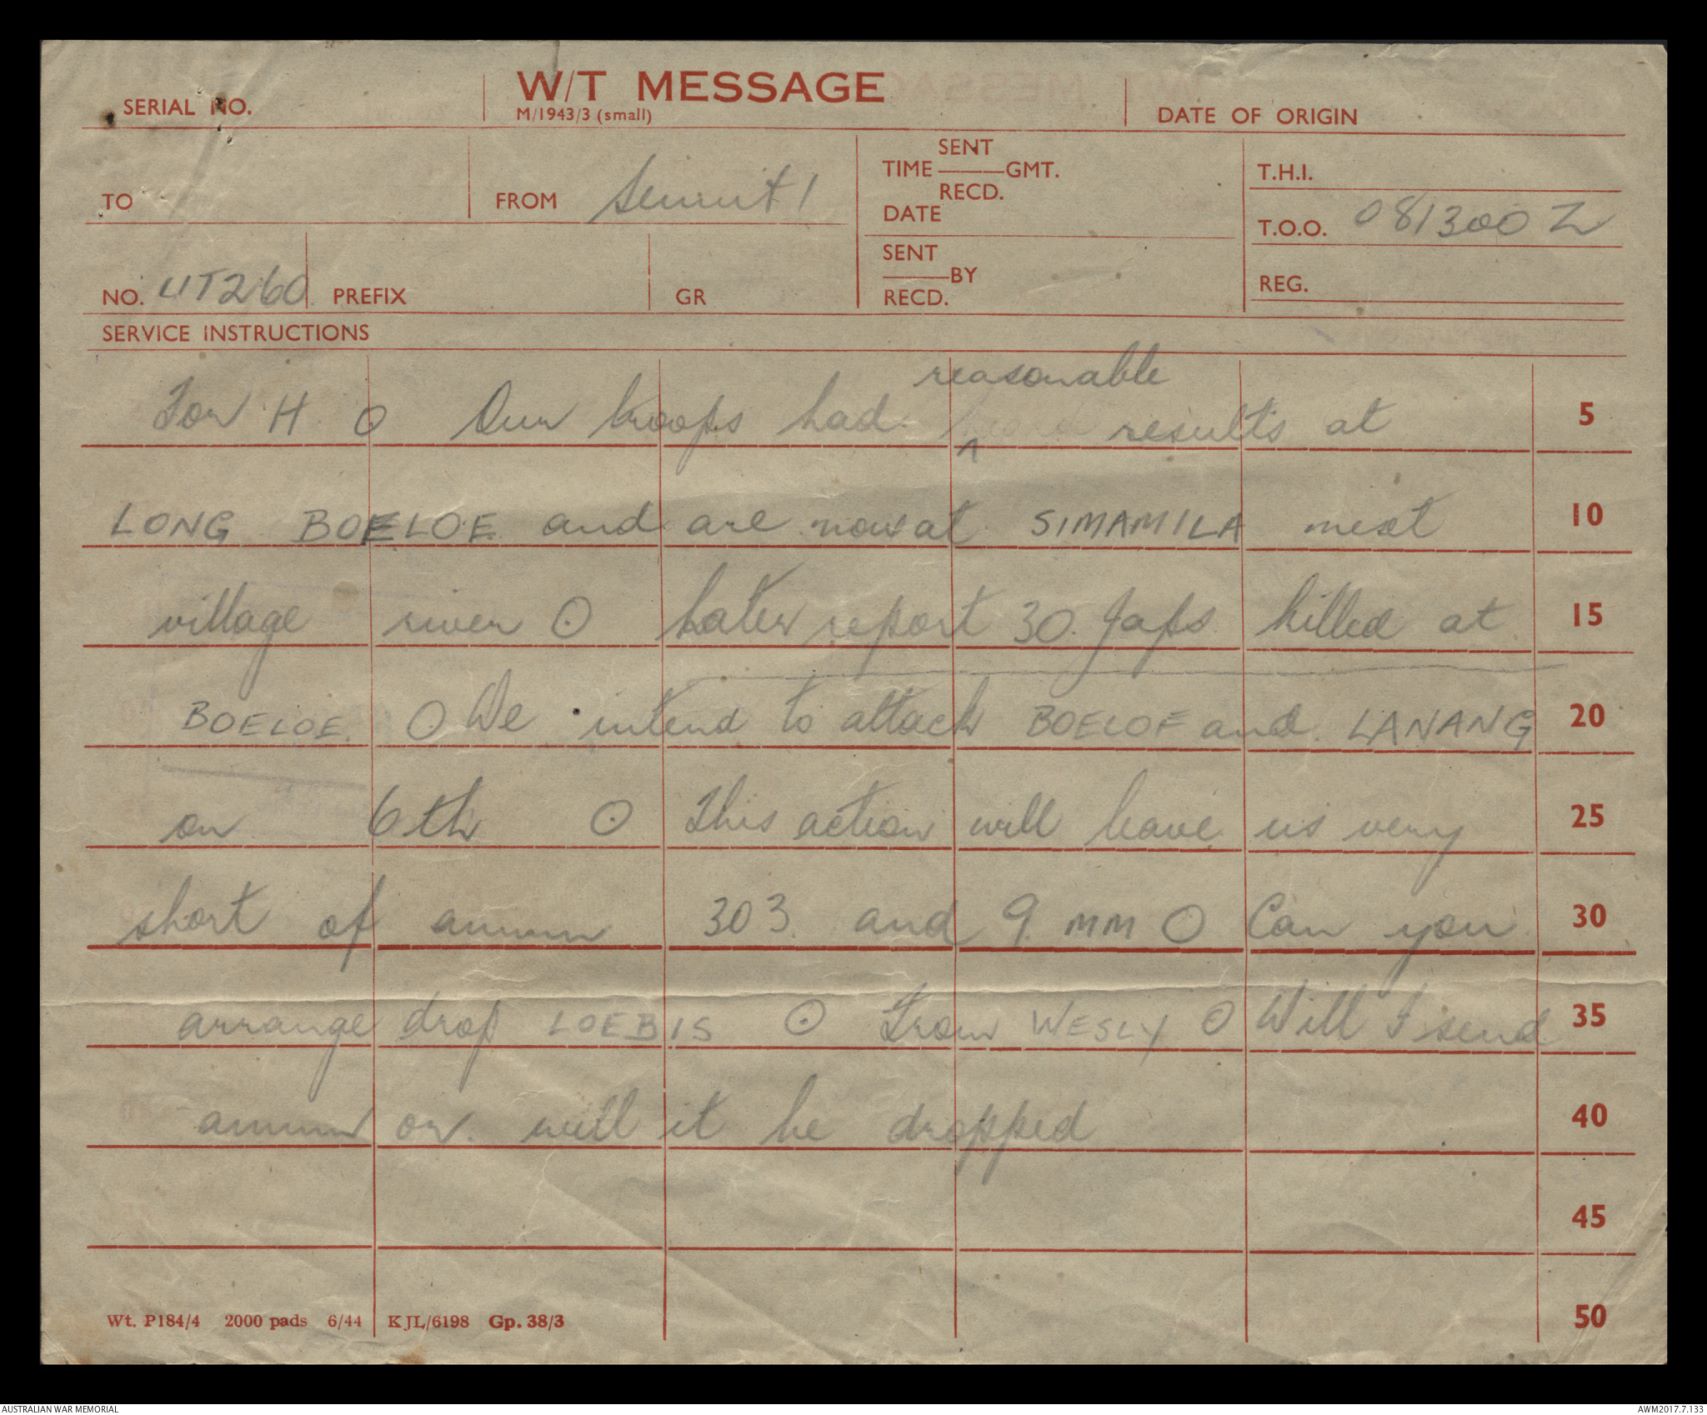 SERIAL NO.
W/T MESSAGE
M/1943/3 (small)
DATE OF ORIGIN
TO
FROM Semut 1
SENT
TIME ——— GMT.
RECD.
DATE
T.H.I.
T.O.O. 081300 Z
NO. UT260
PREFIX
GR
SENT
——— BY
RECD.
REG.
SERVICE INSTRUCTIONS
reasonable
For H O Our troops had ^ results at 5
LONG BOELOE and are now at SIMAMILA next 10
village river O Later report 30 Japs killed at 15
BOELOE. O We intend to attack BOELOE and LANANG 20
on 6th O This action will leave us very 25
short of ammn 303 and 9 MM O Can you 30
arrange drop LOEBIS O From WESLY O Will I send 35
ammn or will it be dropped 40
45
50
Wt. P184/4 2000 pads 6/44 KJL/6198 Gp. 38/3
AUSTRALIAN WAR MEMORIAL
AWM2017.7.133